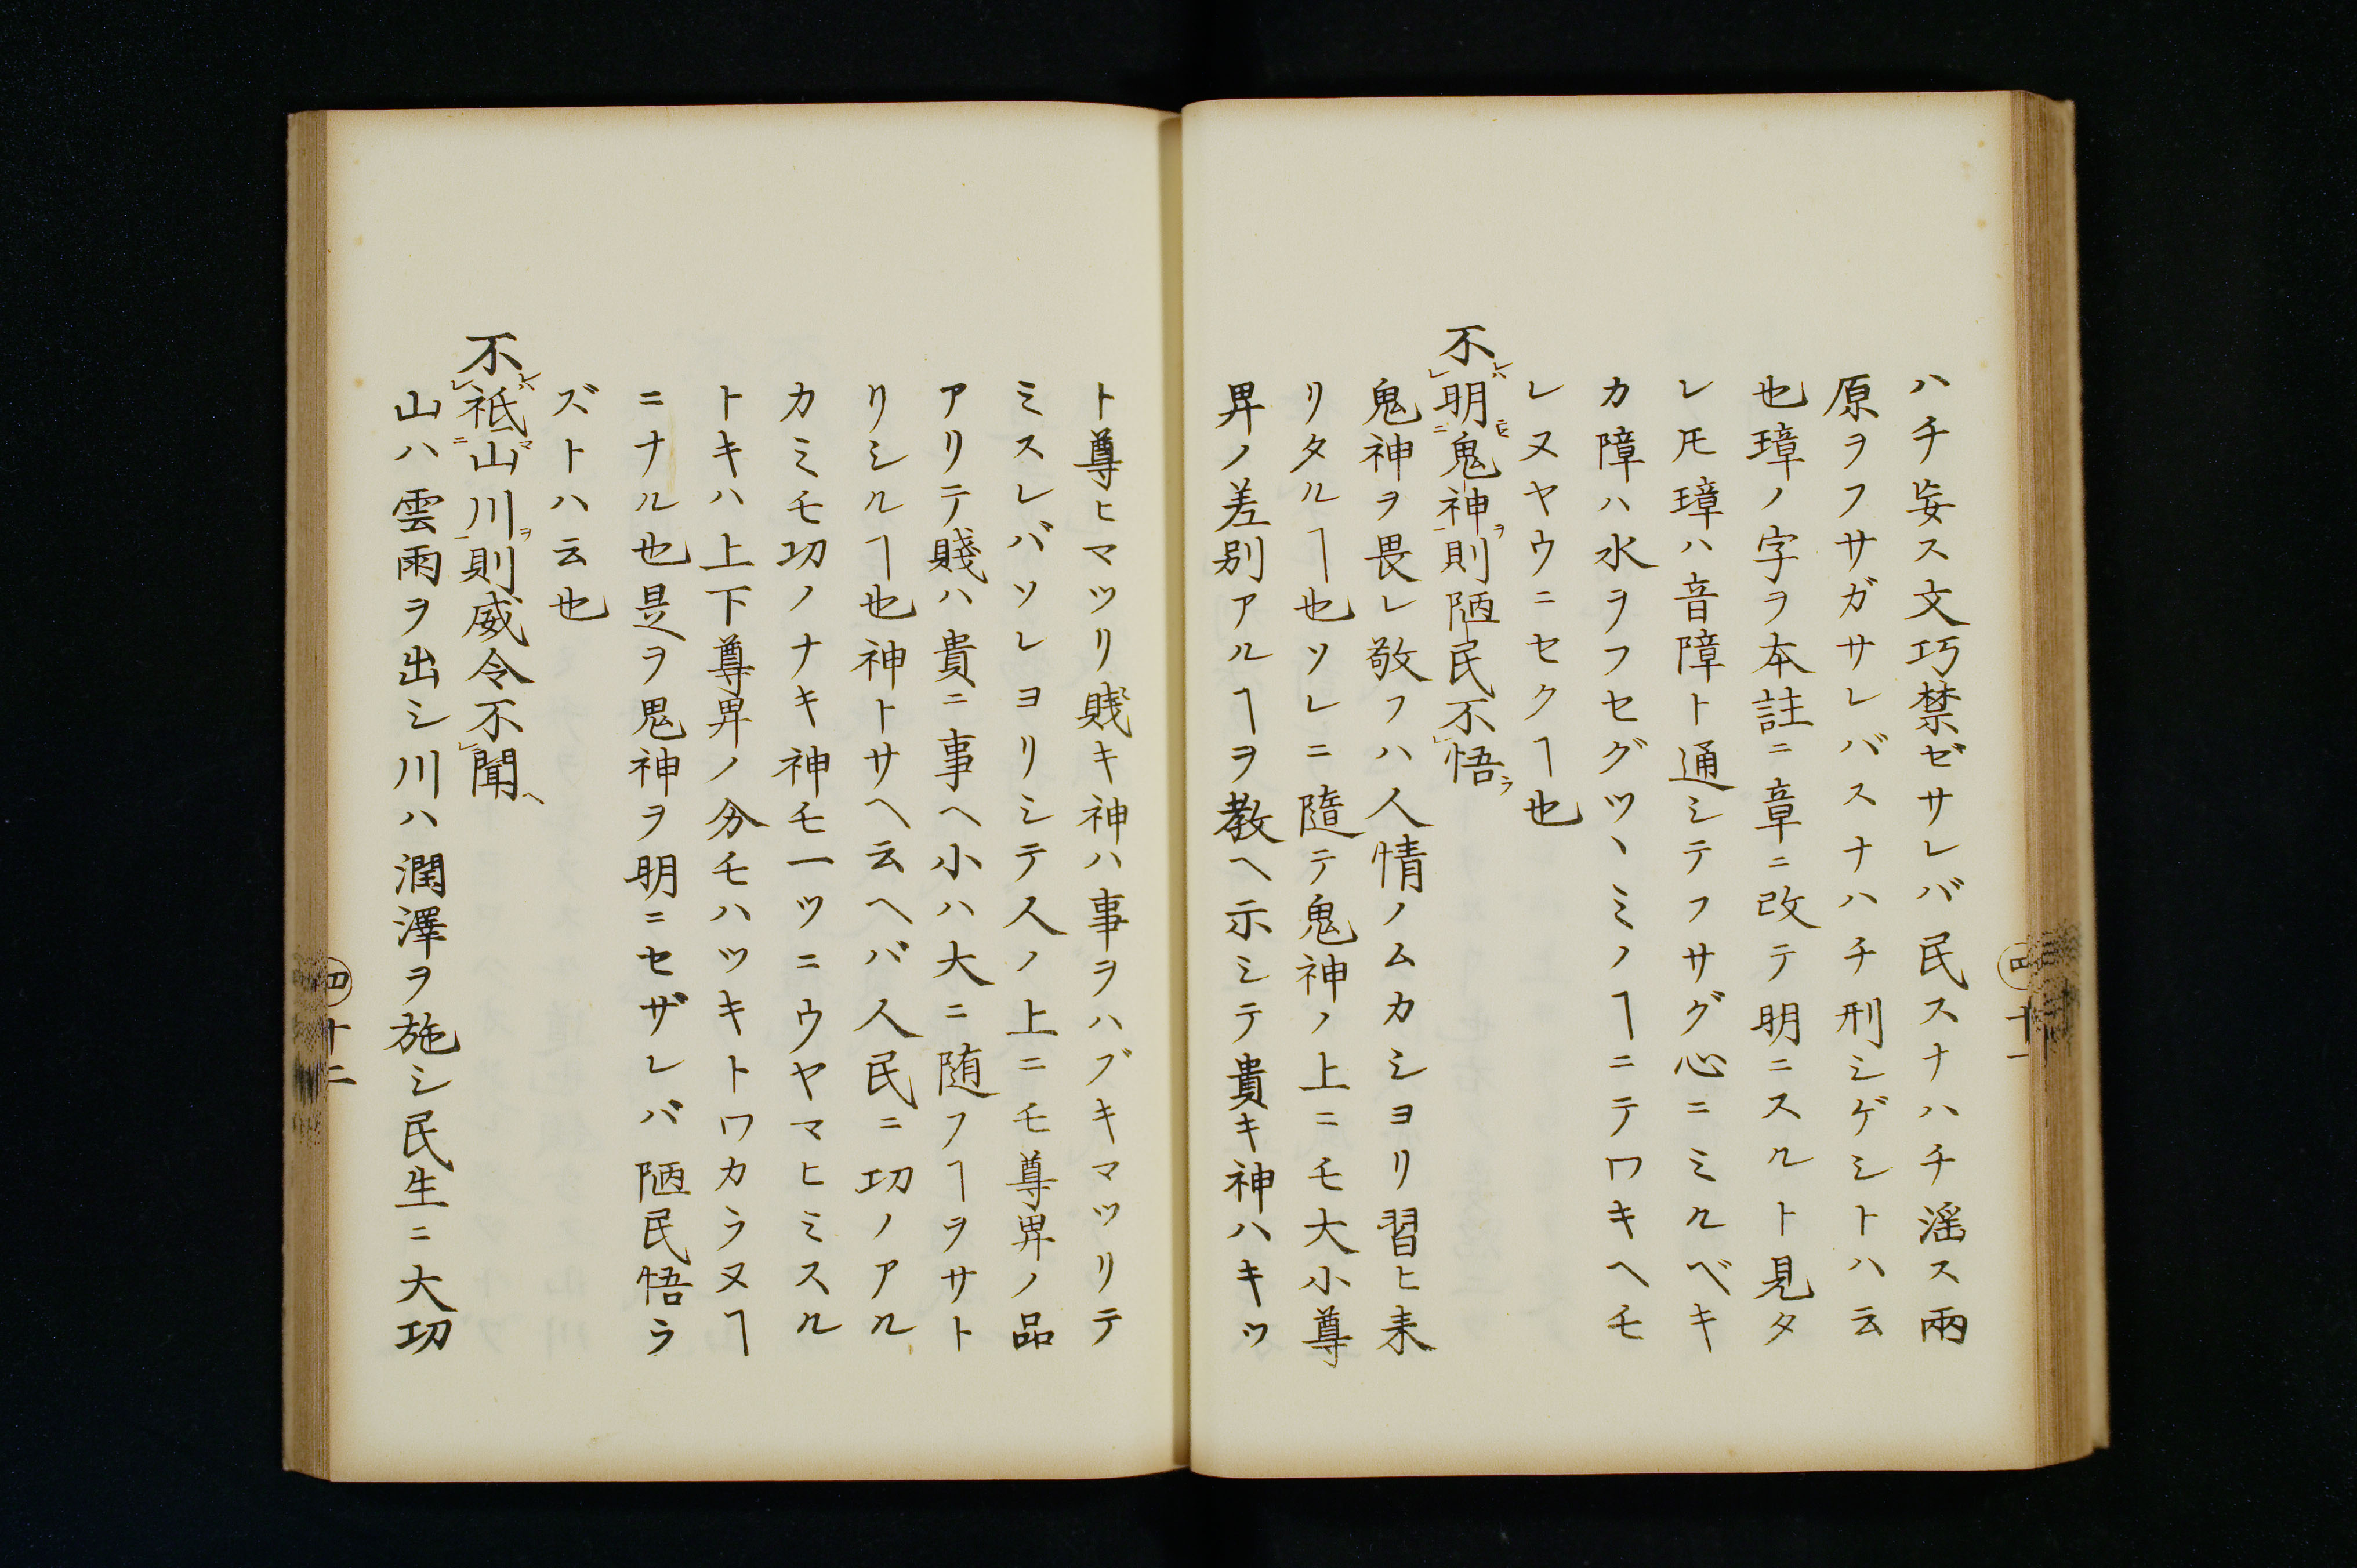 ハチ妄ス文巧禁ゼサレバ民スナハチ淫ス兩
原ヲフサガサレバスナハチ刑シゲシトハ云
也璋ノ字ヲ本註ニ章ニ改テ明ニスルト見タ
レ𪜈璋ハ音障ト通シテフサグ心ニミルベキ
カ障ハ水ヲフセグツヽミノヿニテワキヘモ
レヌヤウニセクヿ也
不明鬼神則陋民不悟
鬼神ヲ畏レ敬フハ人情ノムカシヨリ習ヒ来
リタルヿ也ソレニ隨テ鬼神ノ上ニモ大小尊
卑ノ差別アルヿヲ教ヘ示シテ貴キ神ハキツ
ト尊ヒマツリ賤キ神ハ事ヲハブキマツリテ
ミスレバソレヨリシテ人ノ上ニモ尊卑ノ品
アリテ賤ハ貴ニ事ヘ小ハ大ニ随フヿヲサト
リシルヿ也神トサヘ云ヘバ人民ニ功ノアル
カミモ功ノナキ神モ一ツニウヤマヒミスル
トキハ上下尊卑ノ分モハツキトワカラヌヿ
ニナル也是ヲ鬼神ヲ明ニセザレバ陋民悟ラ
ズトハ云也
不祗山川則威令不聞
山ハ雲雨ヲ出シ川ハ潤澤ヲ施シ民生ニ大功
四十一
四十二